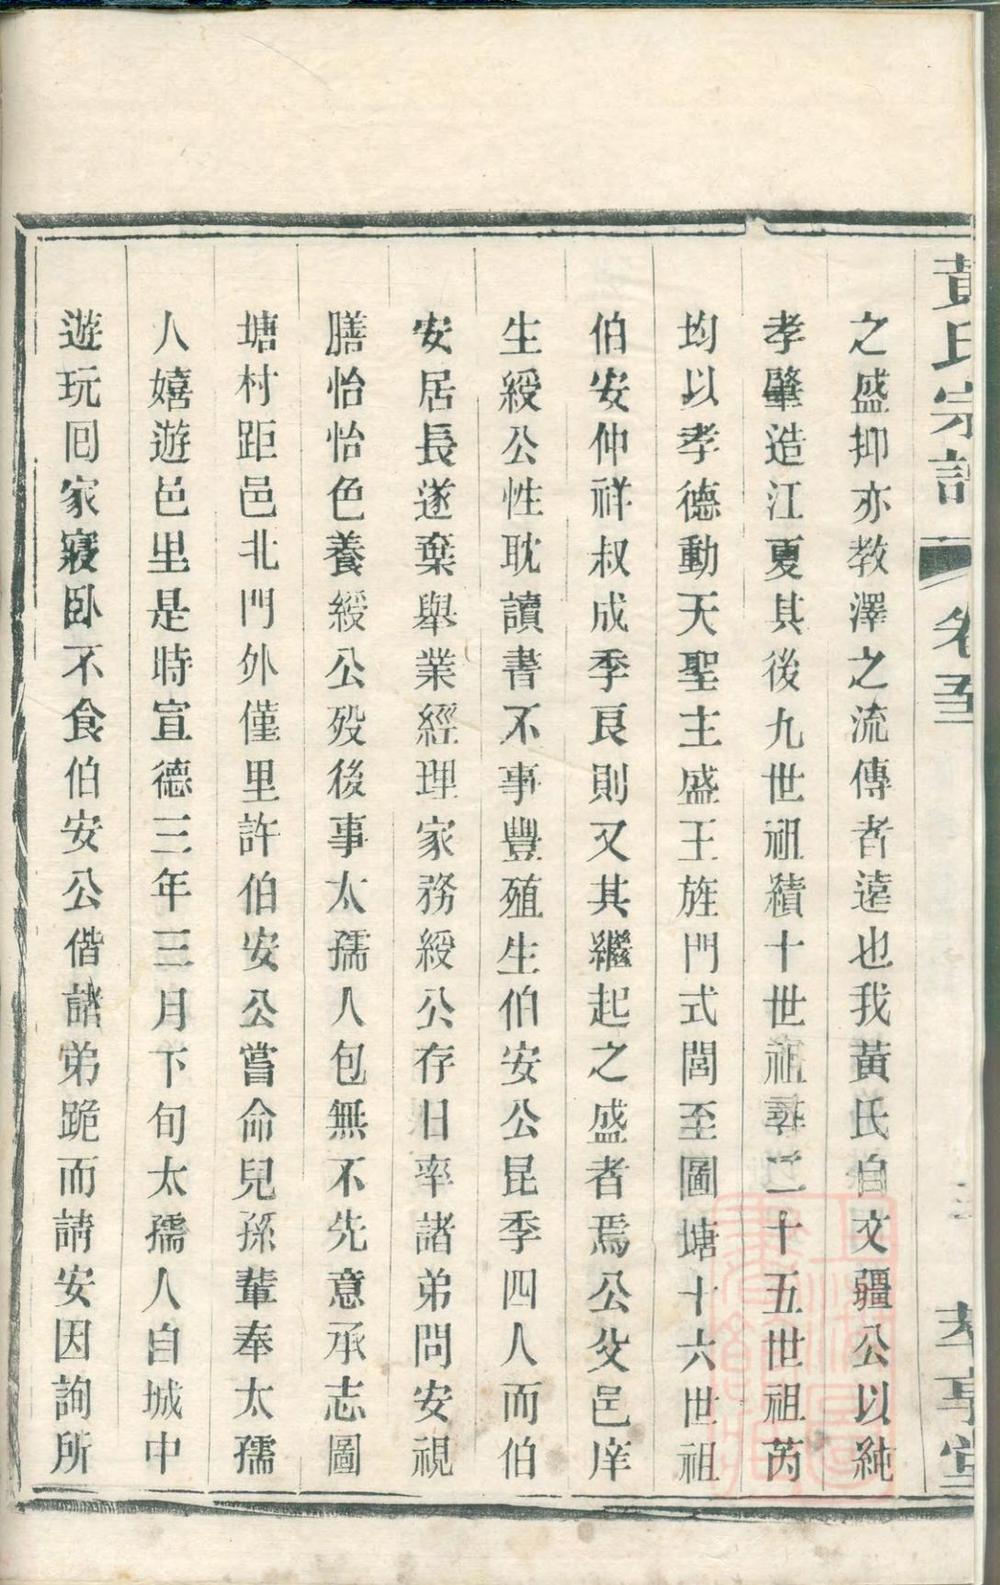 黃氏宗譜 卷五 孝享堂
之盛抑亦教澤之流傳者遠也我黃氏自文疆公以純
孝肇造江夏其後九世祖積十世祖尋二十五世祖芮
均以孝德動天聖主盛王旌門式閭至圖塘十六世祖
伯安仲祥叔成季良則又其繼起之盛者焉公父邑庠
生綬公性耽讀書不事豐殖生伯安公昆季四人而伯
安居長遂棄舉業經理家務綬公存日率諸弟問安視
膳怡怡色養綬公歿後事太孺人包無不先意承志圖
塘村距邑北門外僅里許伯安公嘗命兒孫輩奉太孺
人嬉遊邑里是時宣德三年三月下旬太孺人自城中
遊玩囘家寢臥不食伯安公偕諸弟跪而請安因詢所